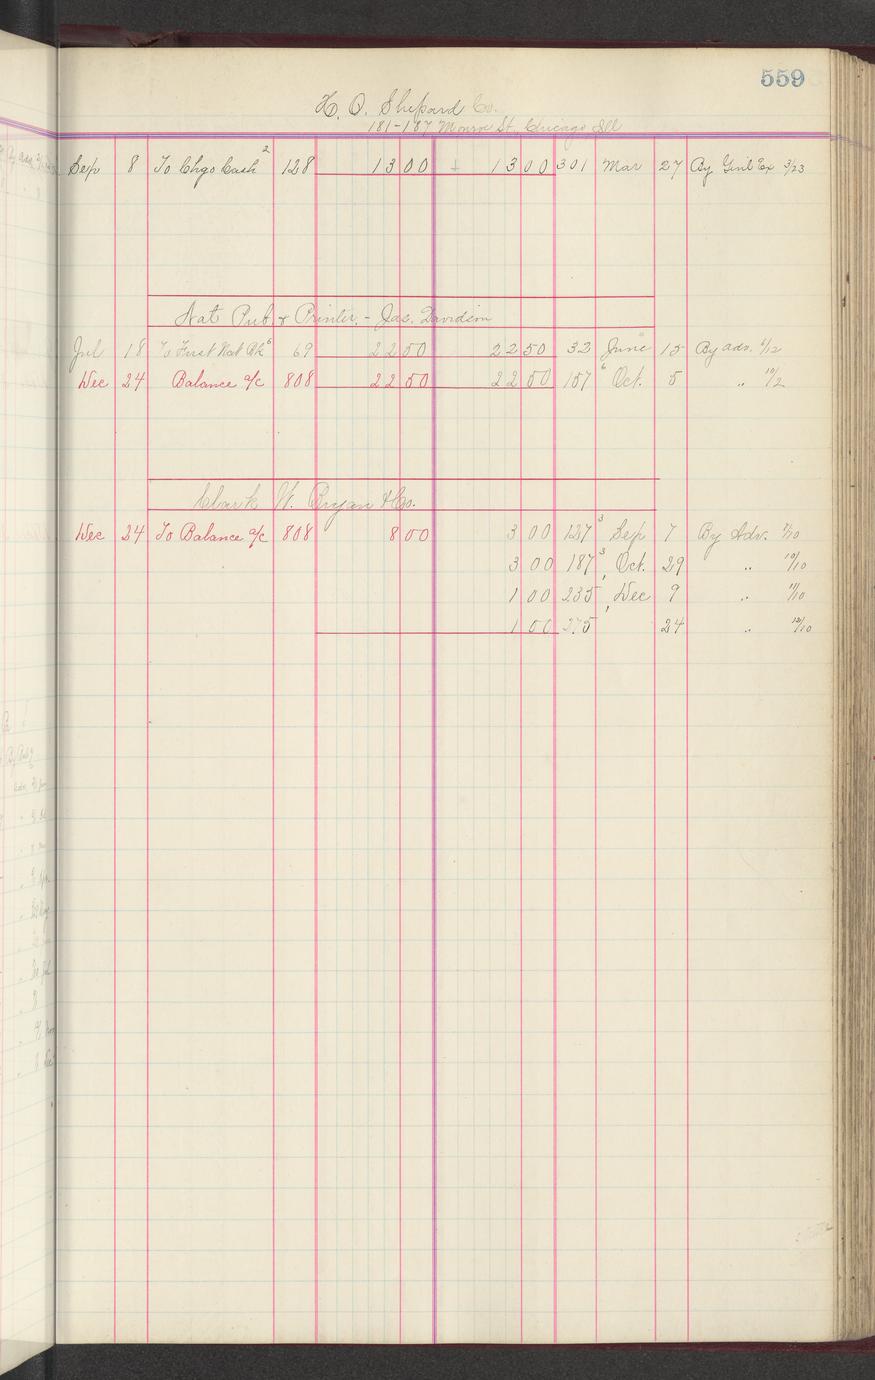 559
H. O. Shepard Co.
181-187 Monroe St. Chicago Ill
Sep 8 To Chgo Cash 2 128 13 00 13 00 301 Mar 27 By Genl Ex 3/23
Nat Pub & Printer - Jas. Davidson
Jul 18 To First Nat Bk 6 69 22 50 22 50 32 June 15 By adv. 6/12
Dec 24 Balance a/c 808 22 50 22 50 157 6 Oct. 5 " 10/2
Clark W. Bryan & Co.
Dec 24 To Balance a/c 808 8 00 3 00 127 3 Sep 7 By Adv. 9/10
3 00 187 3 Oct. 29 " 10/10
1 00 235 1 Dec 9 " 11/10
1 00 275 1 24 " 12/10